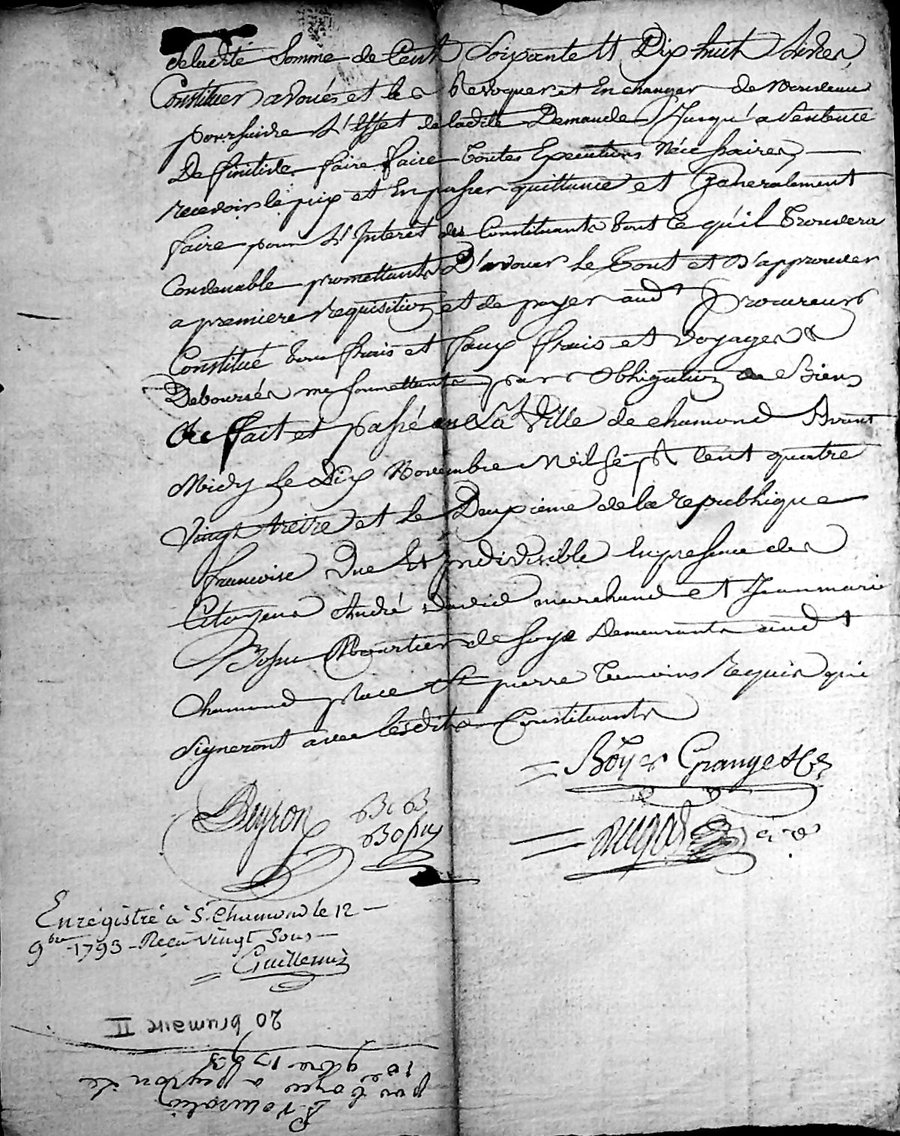 deladite Somme de Cent Soixante et Dix huit Livres,
Constituer avoués et les Revoquer et En changer de Nouveau
poursuivre L'Effet deladite Demande Jusqu'a Sentence
Deffinitive faire faire Toutes Executions Nécessaires
recevoir le prix et En passer quittance et Generalement
faire pour L'Interet des Constituants tout Ce qu'il Trouvera
Convenable promettants D'avouer Le Tout et D'approuver
a premiere requisition et de payer audt procureur
Constitué tous frais et faux frais et voyages
Deboursés se soumettants par obligation de Biens
fait et passé en La Ville de chamond Avant
Midy Le Dix Novembre Mil Sept Cent quatre
Vingt treize et Le Deuxième de la republique
francoise Une Et Indivisible En presence des
Citoyens André David marchand et Jeanmarie
Bossu Mouttier de Soye Demeurants audt
chamond place St pierre Temoins Requis qui
signeront avec lesdits Constituants
Boyer Grange & Ce
Peyron
Bossu
Enrégistré à St Chamond le 12
9bre 1793 Reçu vingt sous
Guillemin
20 brumaire II
a peyron de
10 9bre 1793